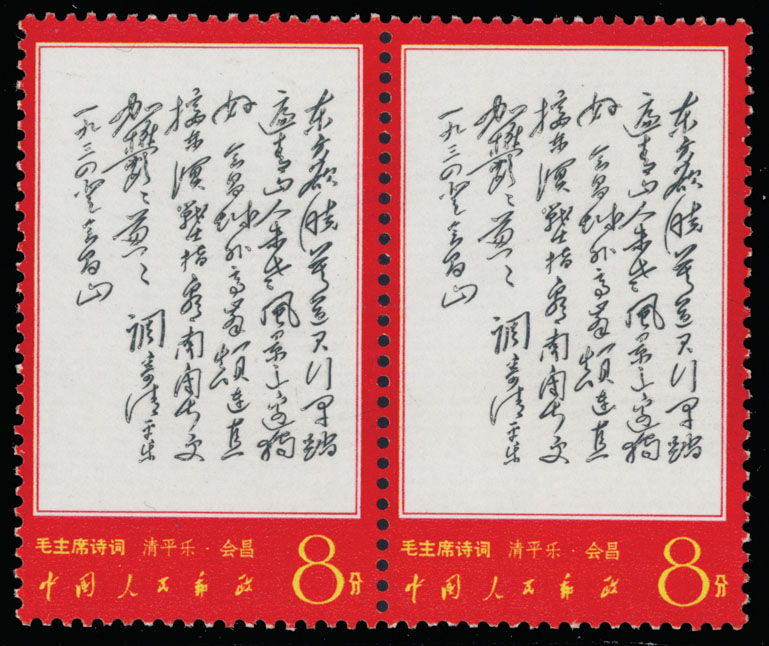 东方欲晓莫道君行早踏
遍青山人未老風景这边独
好 会昌城外高峯颠连直
接东溟戰士指看南粤更
加鬱〻葱〻 調寄清平乐
一九三四登会昌山
毛主席诗词 清平乐·会昌
中国人民邮政 8分
东方欲晓莫道君行早踏
遍青山人未老風景这边独
好 会昌城外高峯颠连直
接东溟戰士指看南粤更
加鬱〻葱〻 調寄清平乐
一九三四登会昌山
毛主席诗词 清平乐·会昌
中国人民邮政 8分